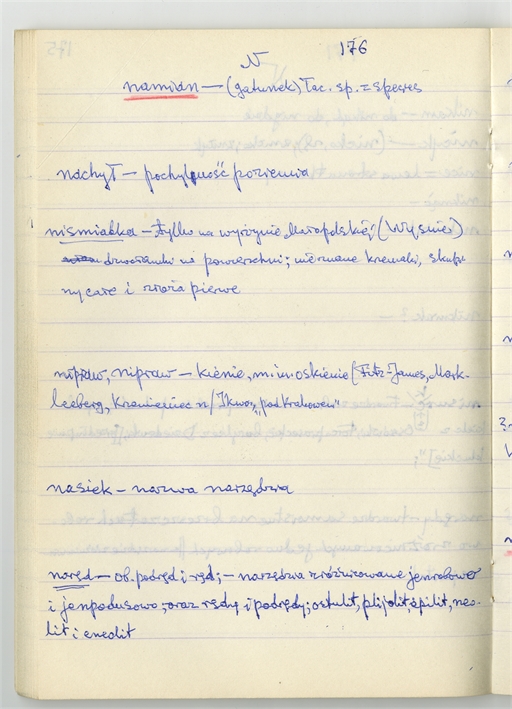 N 176
namian — (gatunek) łac. sp. = species
nachył — pochylność poziemia
nismiałka — tylko na wyżynie Małopolskiej (Wyśnie)
na powierzchni; nieznane kremuki, skupi
nycare i złoża pierwe
nipraw, nipraw — kienie, mimoskienie (Fitz-James, Mark-
leeberg, Krzemieniec n/Ikwą, "pod Krakowem"
nasiek — nazwa narzędzia
naręd — ob. podręd; ręd; — narzędzia zróżnicowane jenrobowo
i jenpodusowo; oraz rędy i podrędy; ostulit, plijolit, epilit, neo-
lit i eneolit